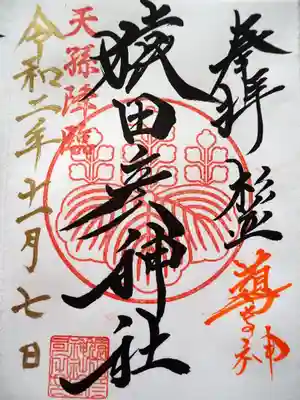 奉拝
杉並
導き神
猿田彦神社
天孫降臨
令和二年十一月七日